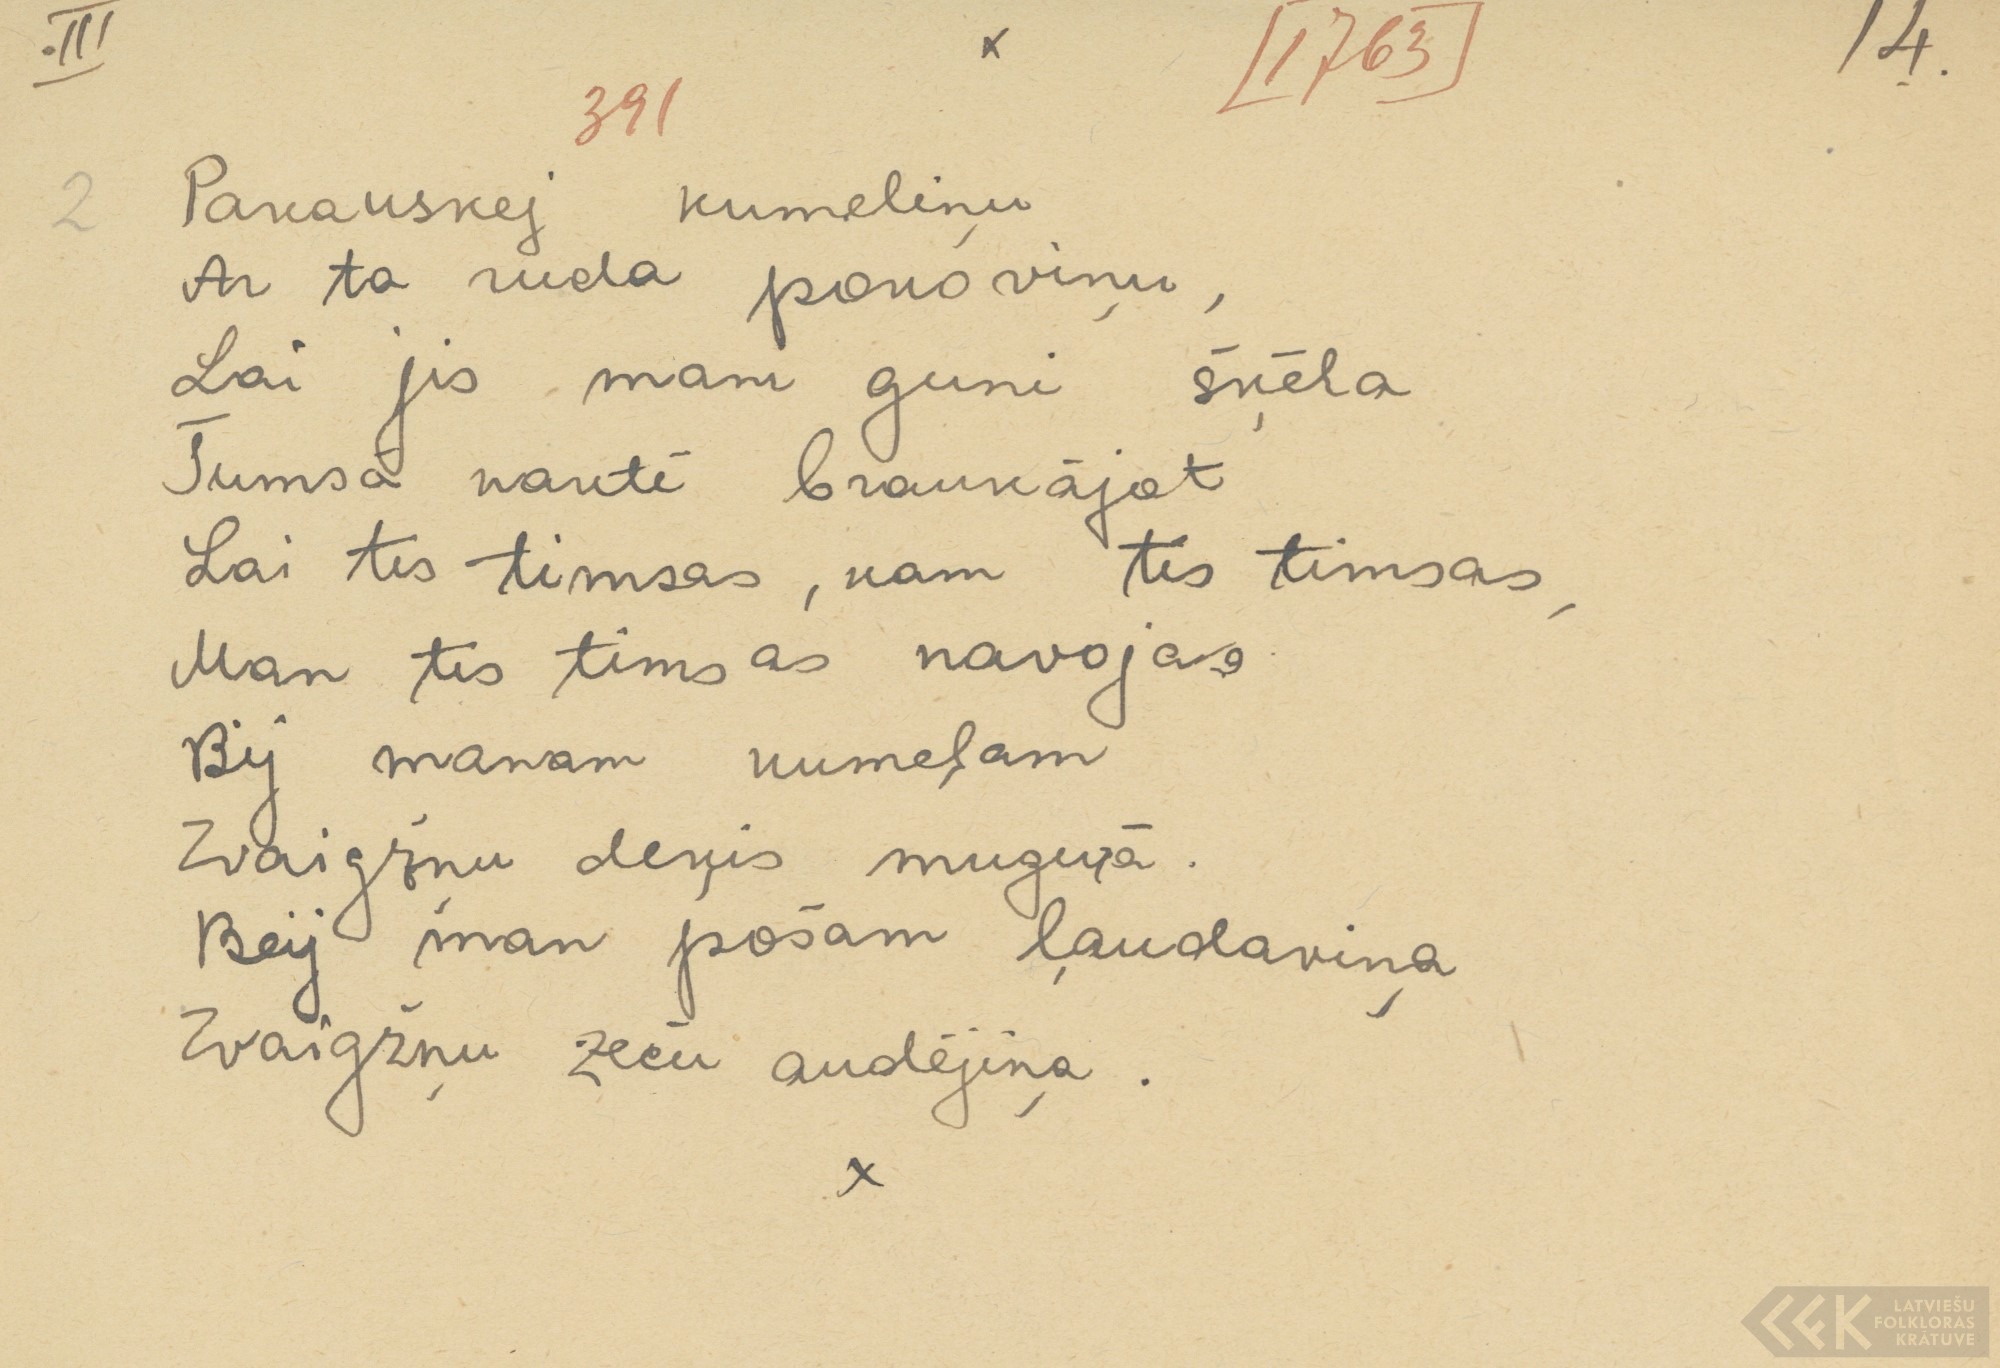 III x [1763] 14.
391
2 Pakauskej kumeliņu
Ar ta ruda pokoviņu,
Lai jis mam guni šķēla
Tumsā naktē braukājot
Lai tis timsas, kam tis timsas,
Man tis timsas navojas
Bij manam kumeļam
Zvaigžņu deķis mugurā.
Beij man pošam ļaudaviņa
Zvaigžņu zeču audējiņa.
x
LATVIEŠU
FOLKLORAS
KRĀTUVE